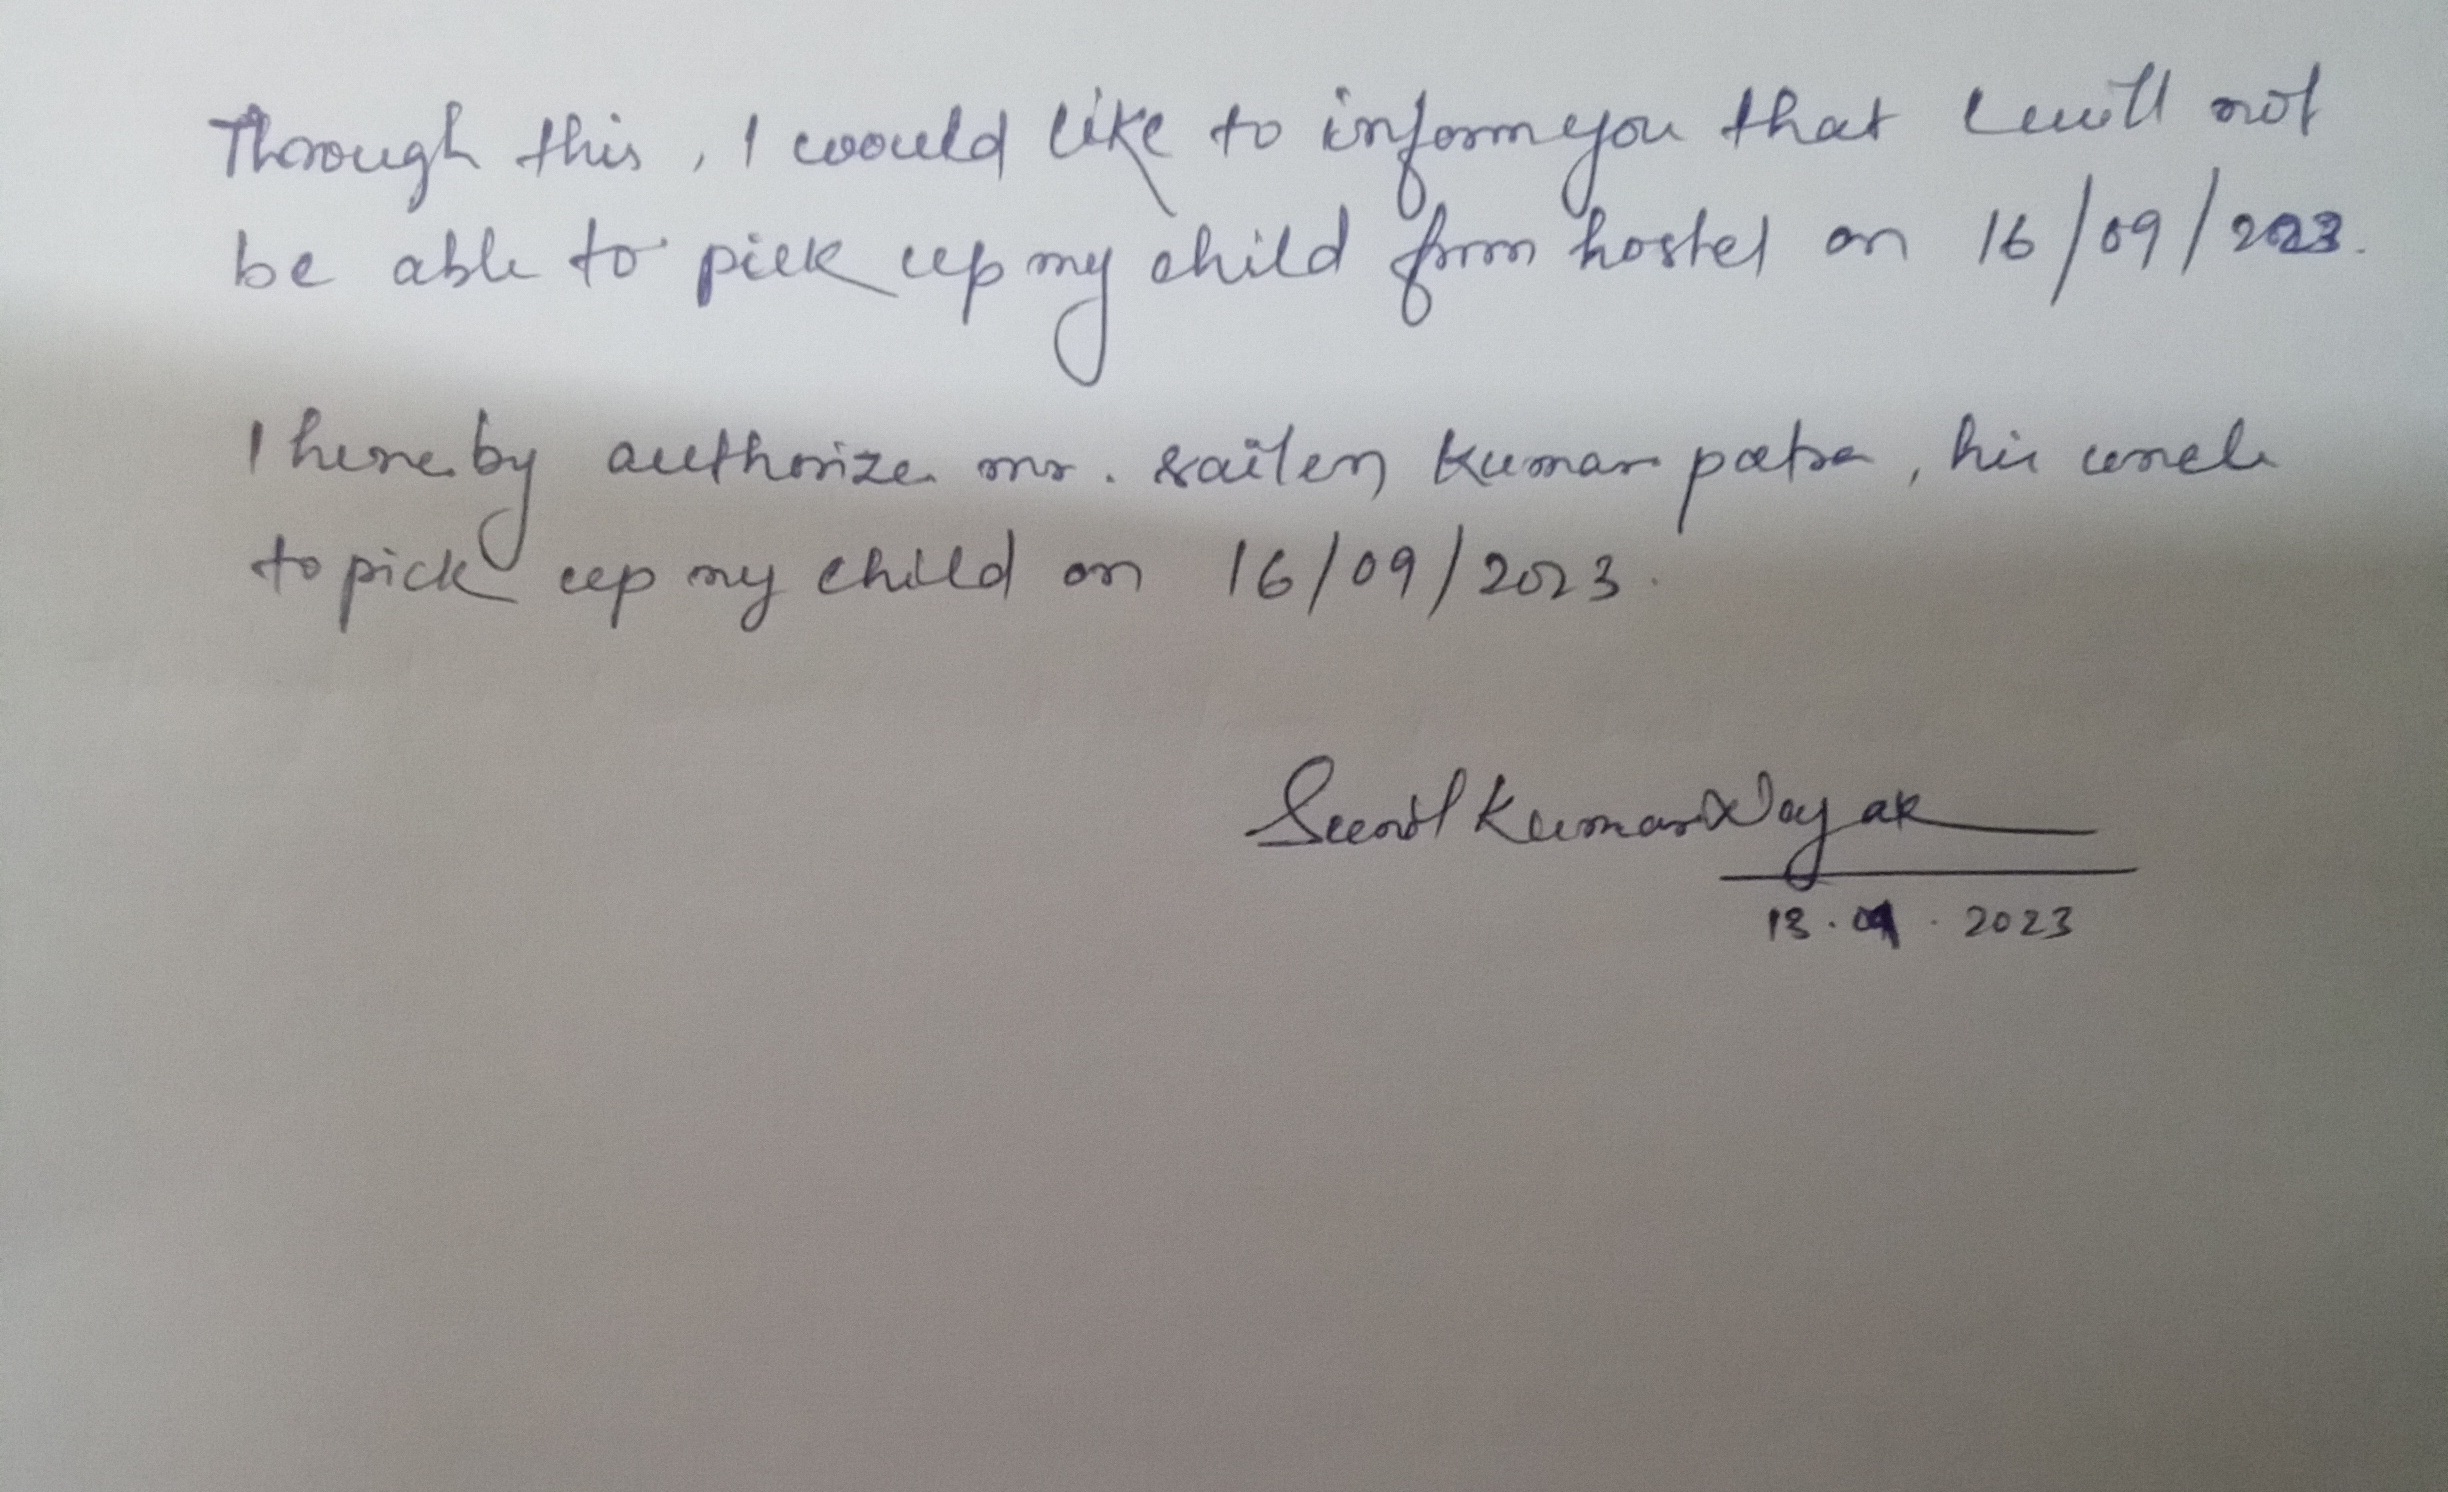 Through this, I would like to inform you that I will not
be able to pick up my child from hostel on 16/09/2023.
I hereby authorize mr. sailen kumar patra, his uncle
to pick up my child on 16/09/2023.
Sunil Kumar Nayak
13.09.2023